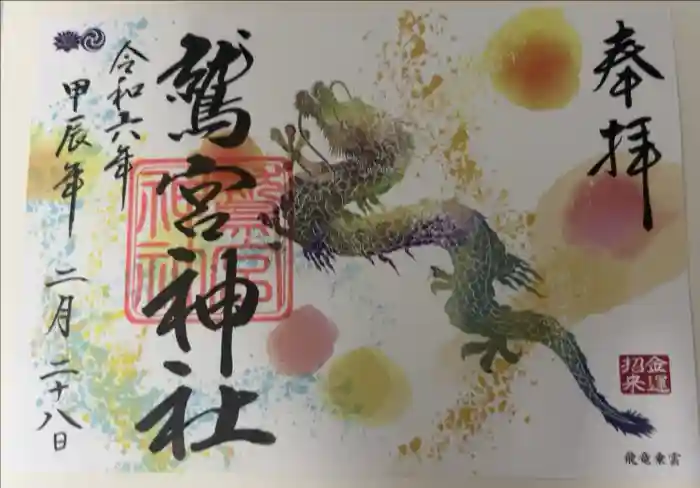 奉拝
金運
招来
飛竜乗雲
鷲宮神社
鷲宮
神社
令和六年
甲辰年 二月二十八日